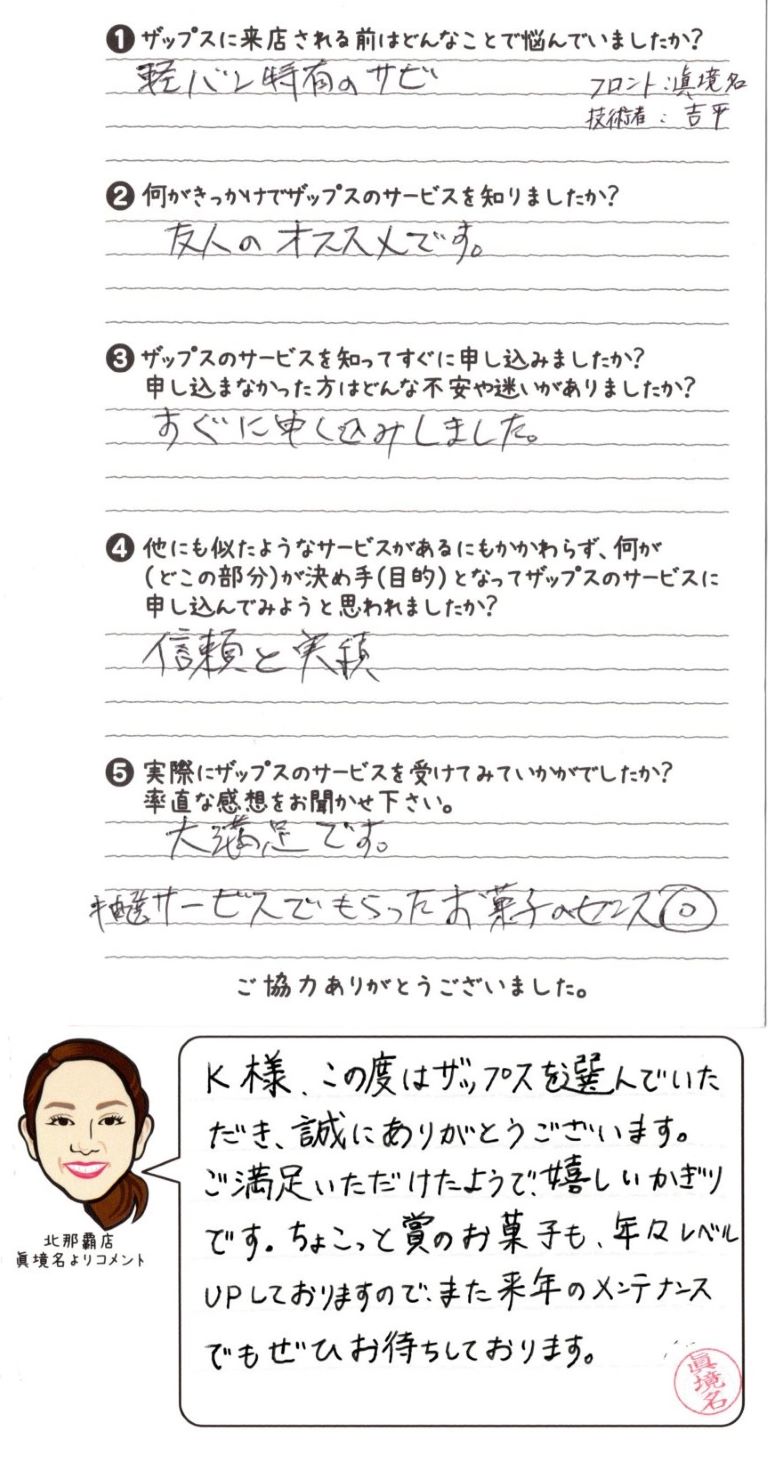 ❶ ザップスに来店される前はどんなことで悩んでいましたか?
軽バン特有のサビ
フロント:眞境名
技術者:吉平
❷ 何がきっかけでザップスのサービスを知りましたか?
友人のオススメです。
❸ ザップスのサービスを知ってすぐに申し込みましたか?
申し込まなかった方はどんな不安や迷いがありましたか?
すぐに申し込みしました。
❹ 他にも似たようなサービスがあるにもかかわらず、何が
(どこの部分)が決め手(目的)となってザップスのサービスに
申し込んでみようと思われましたか?
信頼と実績
❺ 実際にザップスのサービスを受けてみていかがでしたか?
率直な感想をお聞かせ下さい。
大満足です。
サービスでもらったお菓子のセンス◎
ご協力ありがとうございました。
K様、この度はザップスを選んでいた
だき、誠にありがとうございます。
ご満足いただけたようで、嬉しいかぎり
です。ちょこっと賞のお菓子も、年々レベル
UPしておりますので、また来年のメンテナンス
でもぜひお待ちしております。
北那覇店
眞境名よりコメント
眞境名